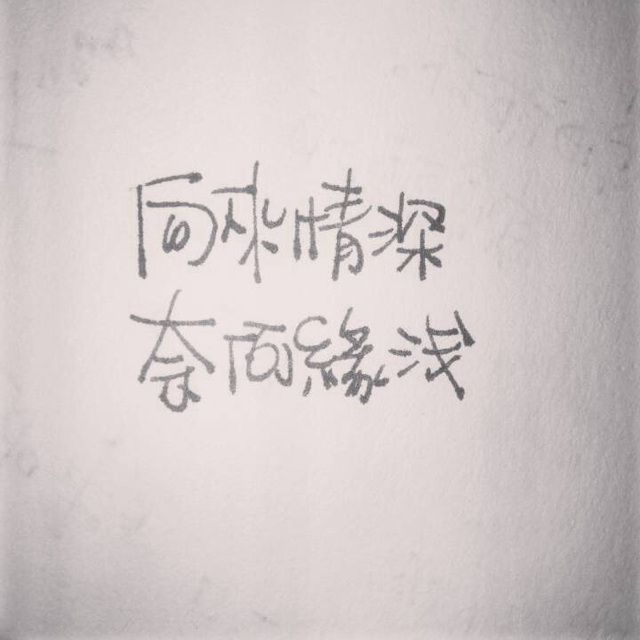 向来情深
奈何緣浅